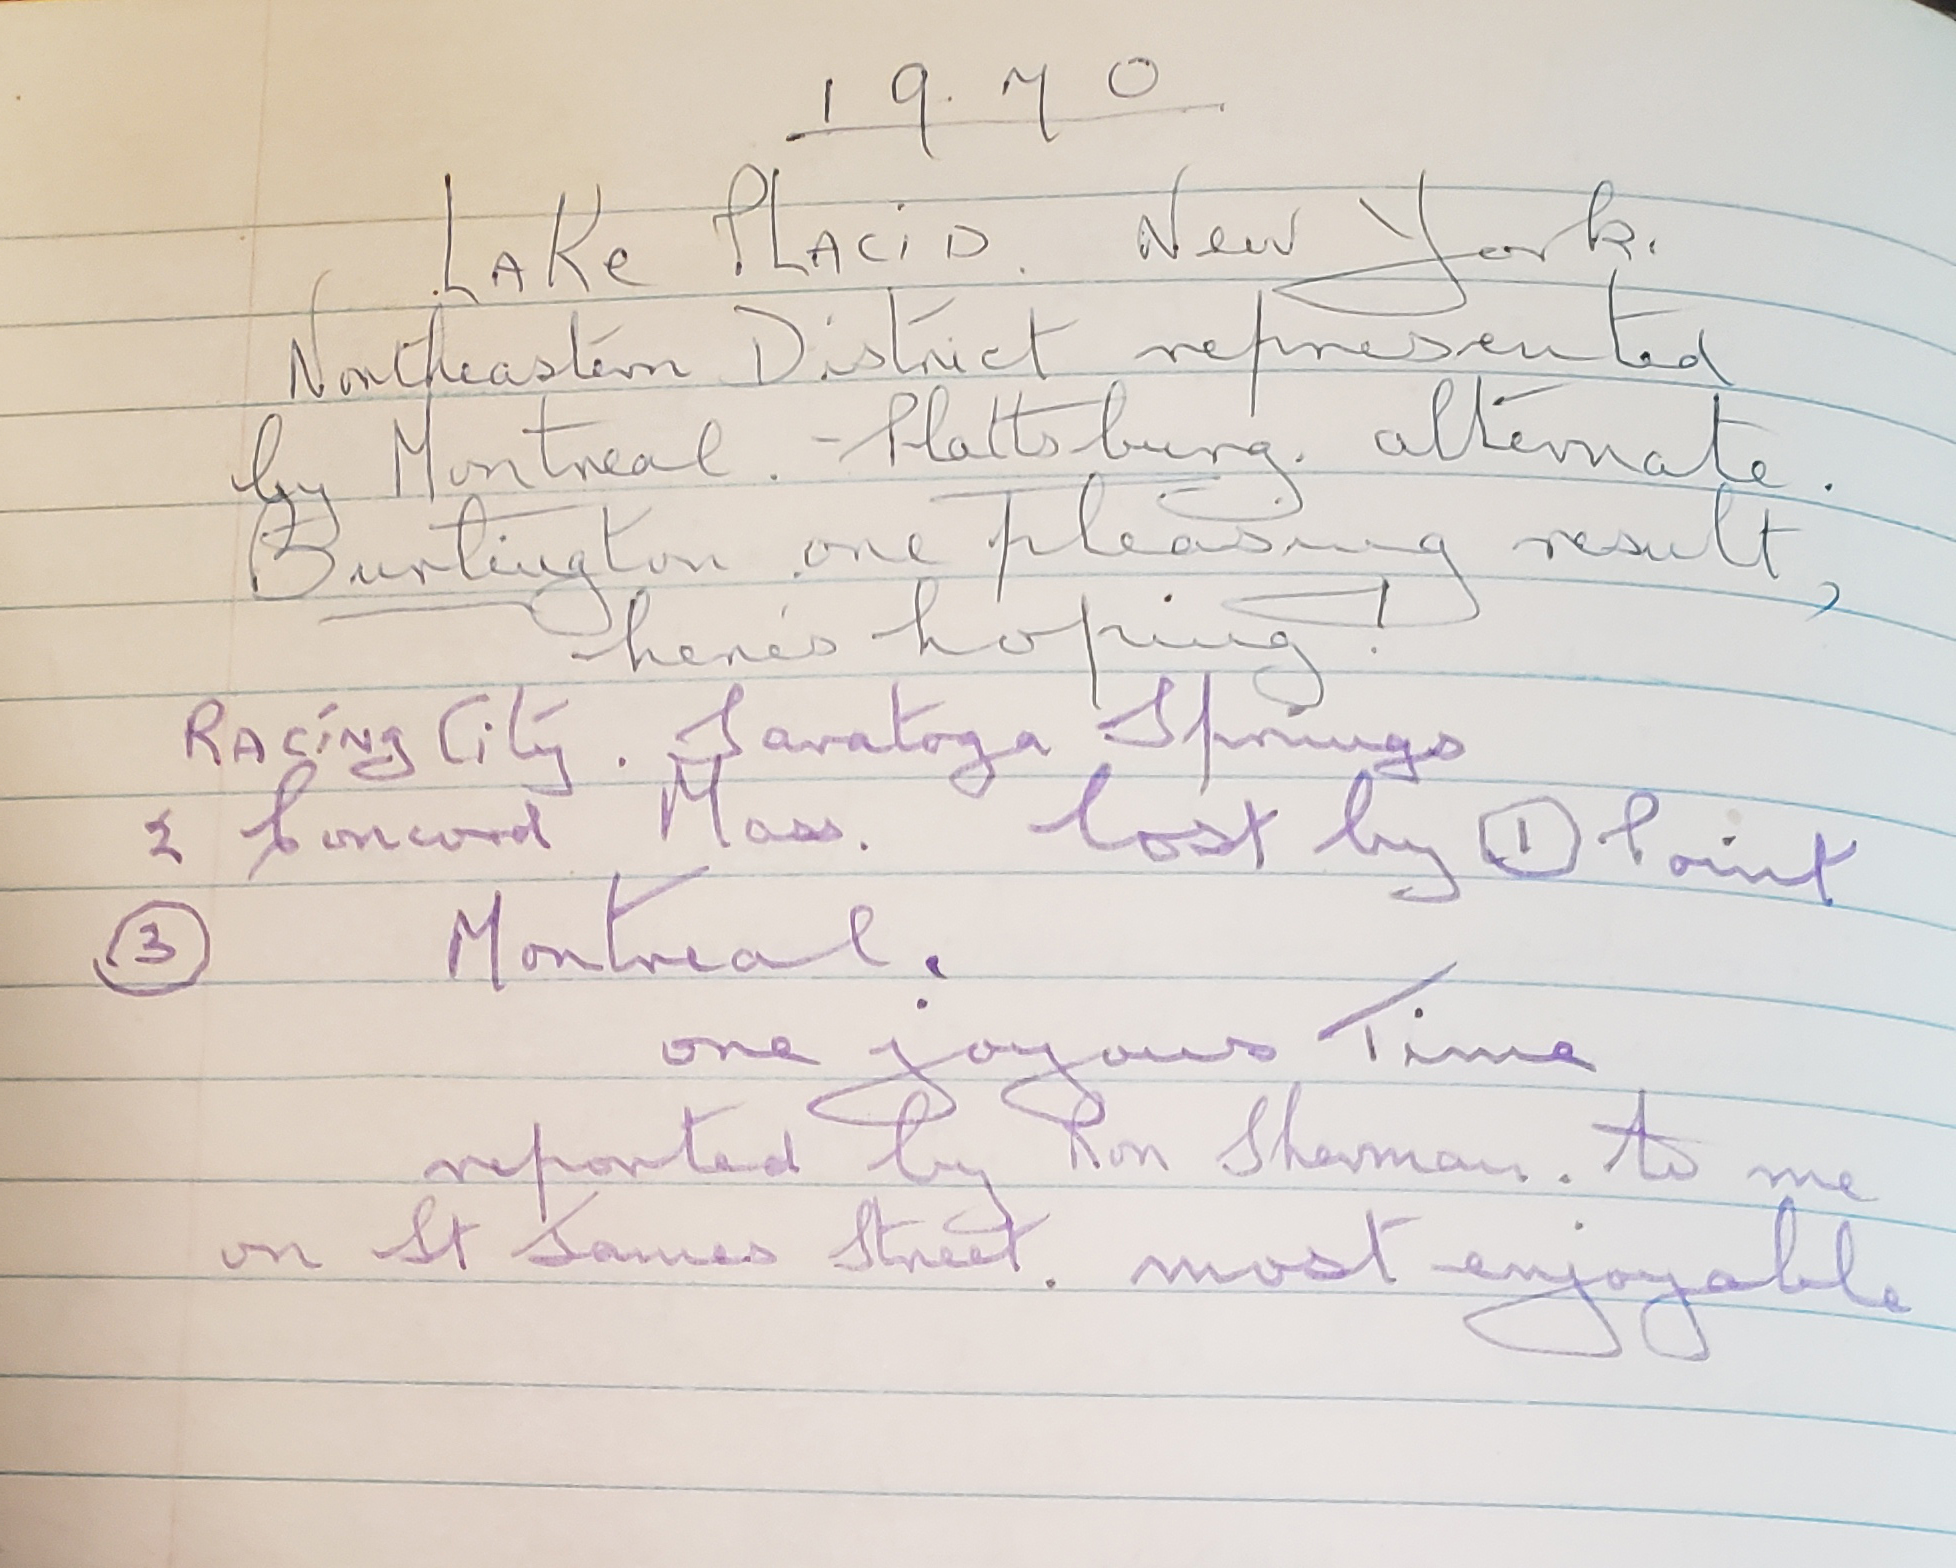 19.70
LAKe PLACiD. New York.
Northeastern District represented
by Montreal. - Plattsburg. alternate.
Burlington one pleasing result,
here's hoping!
RACiNg City. Saratoga Springs
2 Concord Mass. lost by 1 Point
3 Montreal.
one joyous Time
reported by Ron Sherman. to me
on St James Street. most enjoyable